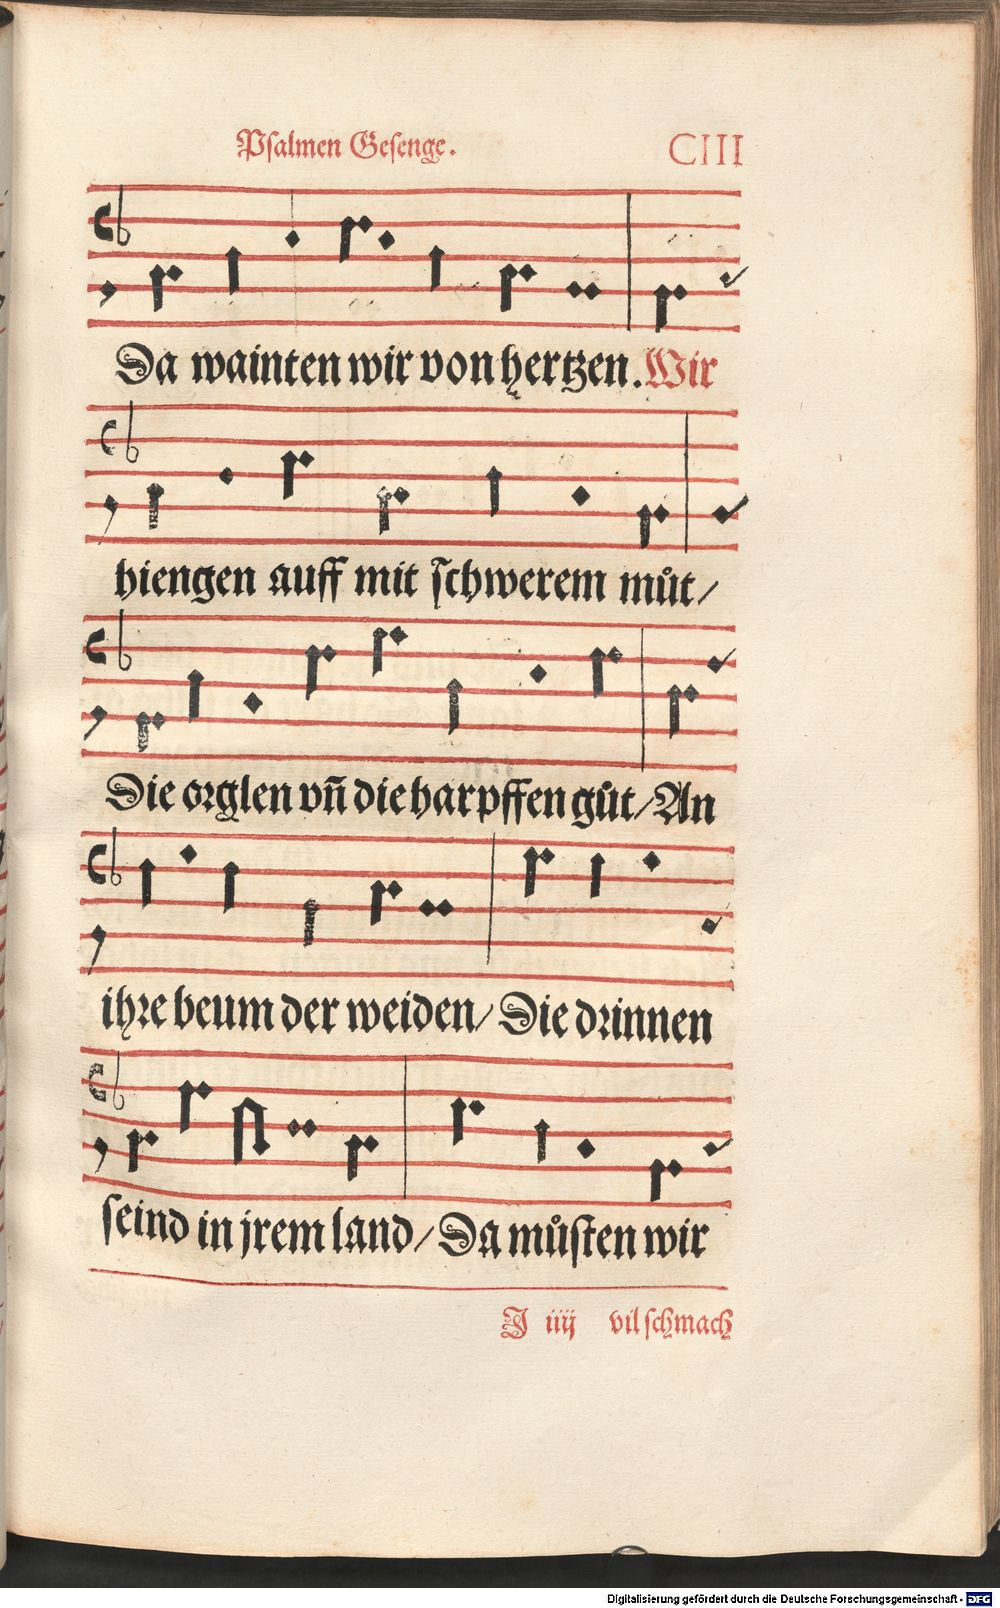 Psalmen Gesenge. CIII
Da wainten wir von hertzen. Wir
hiengen auff mit schwerem můt/
Die orglen vñ die harpffen gůt/ An
ihre beum der weiden/ Die drinnen
seind in jrem land/ Da můsten wir
J iiij vil schmach
Digitalisierung gefördert durch die Deutsche Forschungsgemeinschaft - DFG